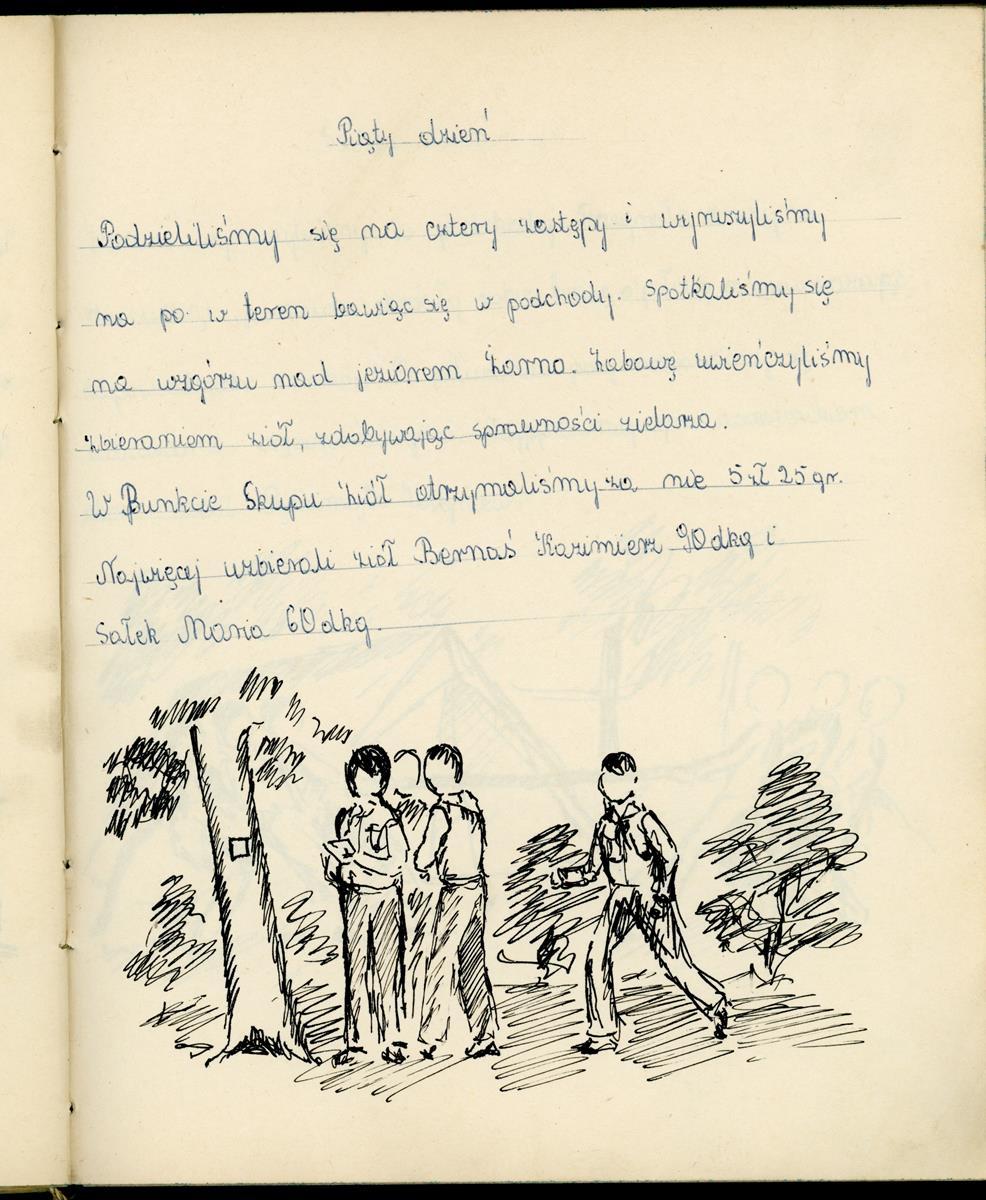 Piąty dzień
Podzieliliśmy się na cztery zastępy i wyruszyliśmy
na po w teren bawiąc się w podchody. Spotkaliśmy się
na wzgórzu nad jeziorem Żarno. Zabawę uwieńczyliśmy
zbieraniem ziół, zdobywając sprawności zielarza.
W Punkcie Skupu Ziół otrzymaliśmy za nie 5 zł 25 gr.
Najwięcej uzbierali ziół Bernaś Kazimierz 90 dkg i
Sałek Maria 60 dkg.